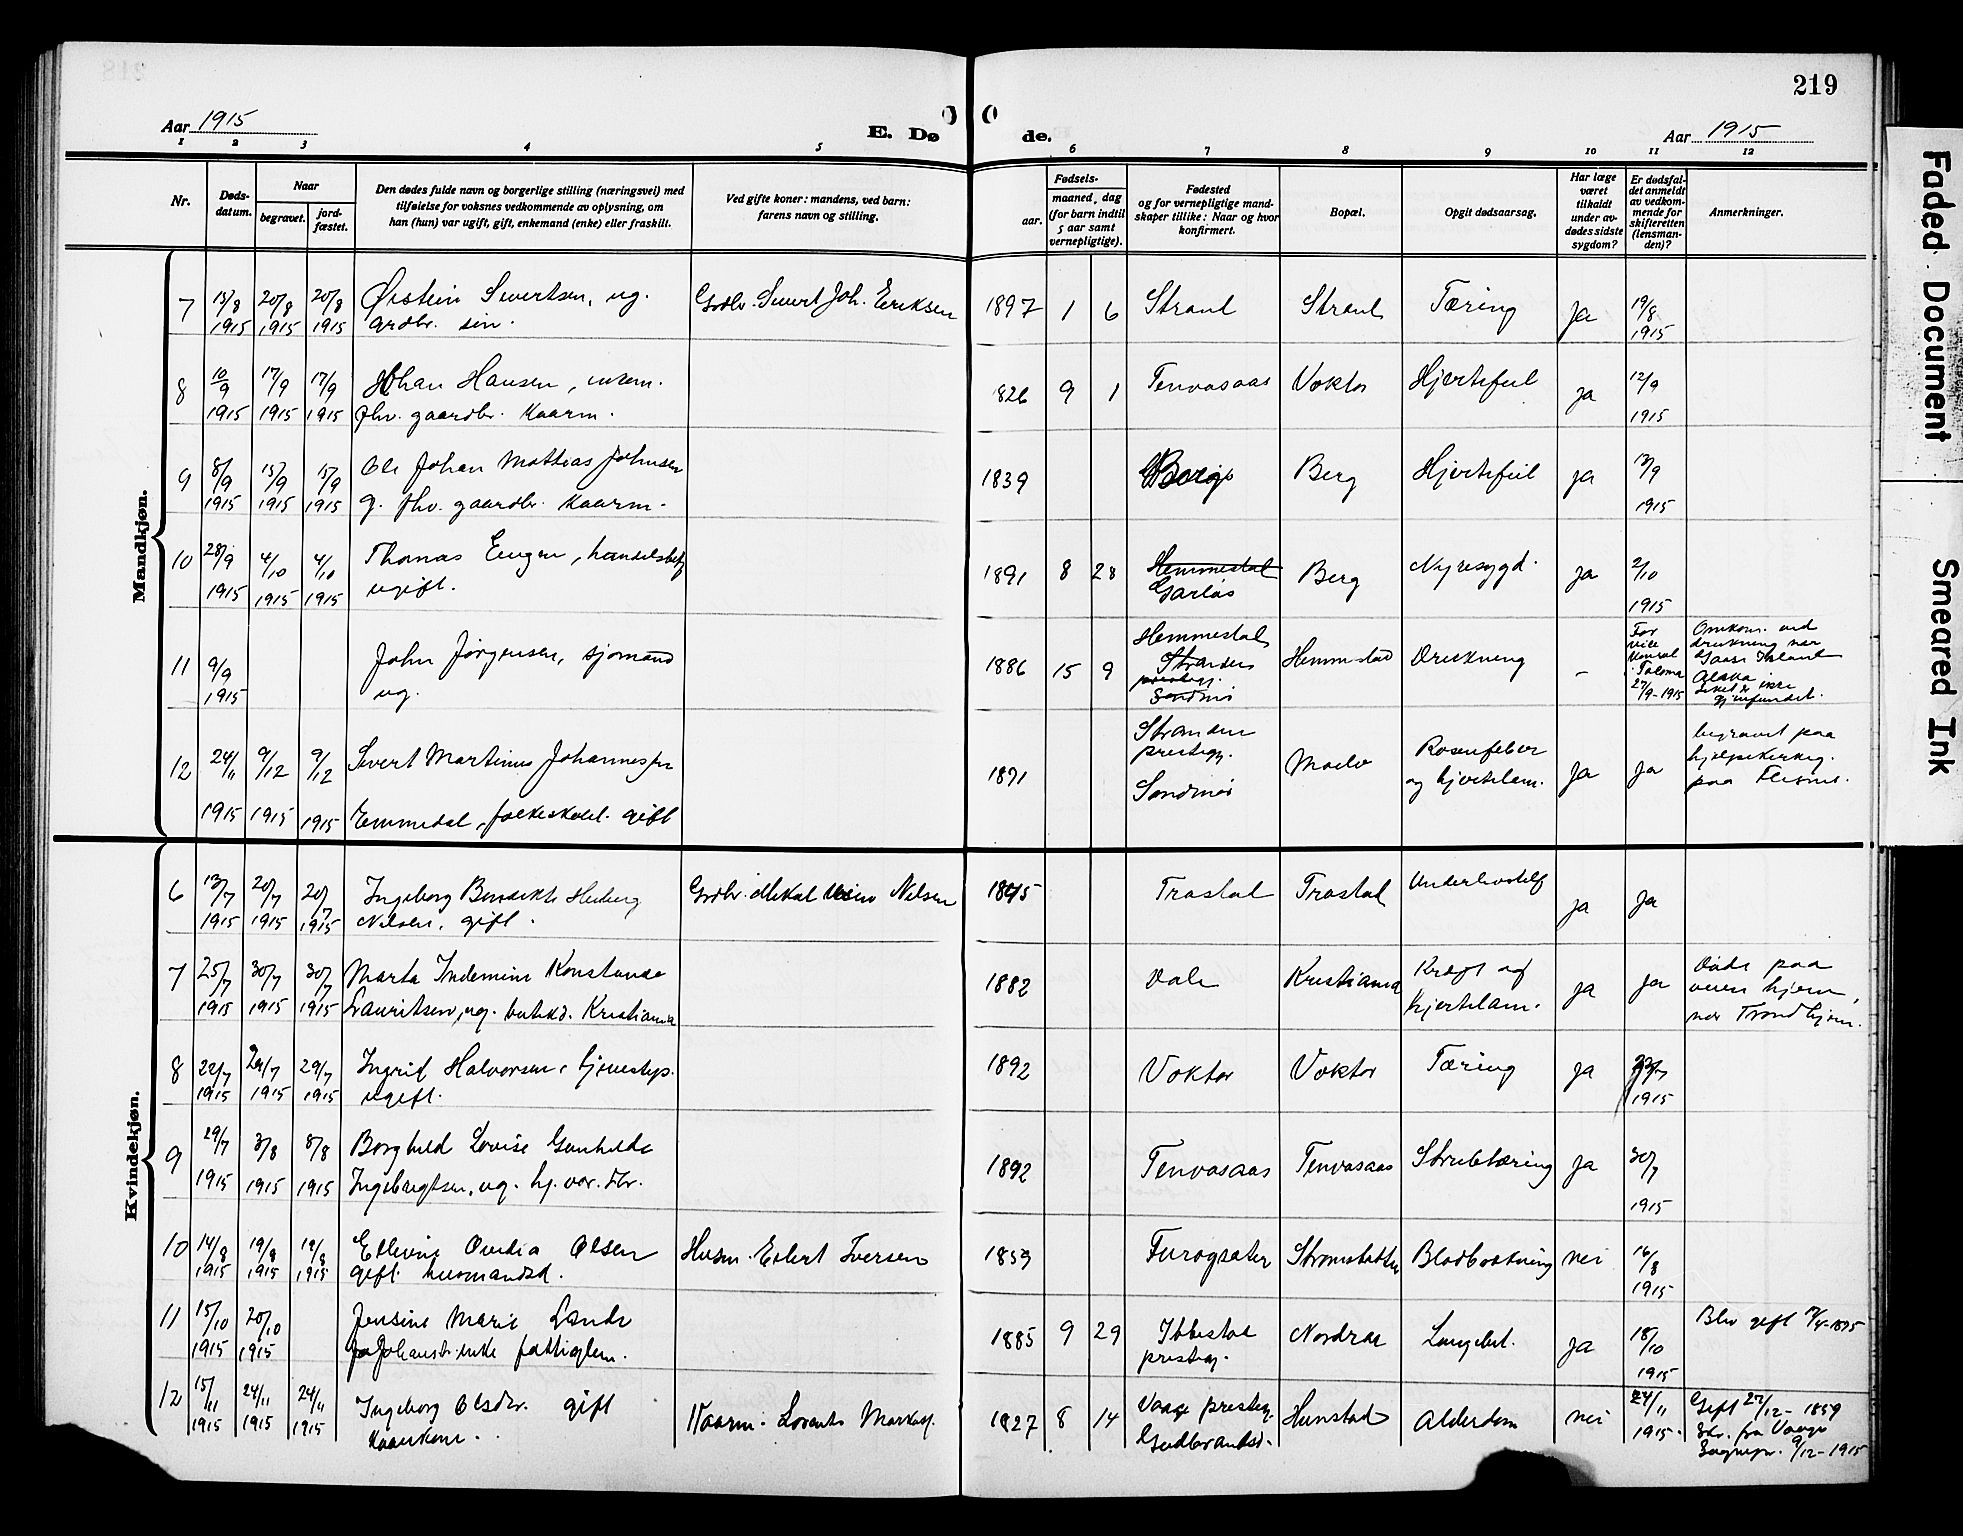 219
Aar 1915
E. Dø
de.
Aar 1915
1 2 3 4 5 6 7 8 9 10 11 12
Nr.
Døds-
datum.
Naar
begravet.
jord-
fæstet.
Den dødes fulde navn og borgerlige stilling (næringsvei) med
tilføielse for voksnes vedkommende av oplysning, om
han (hun) var ugift, gift, enkemand (enke) eller fraskilt.
Ved gifte koner: mandens, ved barn:
farens navn og stilling.
Fødsels-
aar.
maaned, dag
(for barn indtil
5 aar samt
vernepligtige).
Fødested
og for vernepligtige mand-
skaper tillike: Naar og hvor
konfirmert.
Bopæl.
Opgit dødsaarsag.
Har læge
været
tilkaldt
under av-
dødes sidste
sygdom?
Er dødsfal-
det anmeldt
av vedkom-
mende for
skifteretten
(lensman-
den)?
Anmerkninger.
Mandkjøn.
7 15/8 20/8 20/8 Øistein Sivertsen, ug. Grdbr. Sivert Joh. Eriksen 1897 1 6 Strand Strand Tæring Ja 19/8
1915 1915 1915 grdbr. søn. 1915
8 10/9 17/9 17/9 Johan Hansen, enkem. 1826 9 1 Tenvasaas Voktor Hjertefeil ja 12/9
1915 1915 1915 fhv. gaardbr. kaarm. 1915
9 8/9 15/9 15/9 Ole Johan Mathias Johnsen 1839 Berg Hjertefeil ja 13/9
1915 1915 1915 g. fhv. gaardbr. kaarm. 1915
10 28/9 4/10 4/10 Thomas Eugen, handelsbetj. 1891 8 28 Hemmestad Berg Nyresygd. ja 2/10
1915 1915 1915 ugift. Garlos 1915
11 9/9 John Jørgensen, sjømand 1886 15 9 Hemmestad Hemmestad Drukning –
1915 ug. Stranden
prestegj.
Søndmør
For
vice
konsul
Tacoma
27/9-1915
Omkom. ved
drukning nær
Island
Alaska
Liket er ikke
gjenfundet.
12 24/11 9/12 9/12 Sivert Martinus Johannessen 1871 Stranden Moelv Rosenfeber Ja ja begravet paa
prestegj. og hjertelam. hjelpekirkeg.
1915 1915 1915 Emmedal, folkeskolel. gift Søndmør paa Flesnes.
Kvindekjøn.
6 13/7 20/7 20/7 Ingeborg Benedikte Heiberg Grdbr. Mikal Nilsen 1845 Trastad Trastad Underlivslidf. ja Ja
1915 1915 1915 Nilsen, gift.
7 25/7 30/7 30/7 Marta Indemine Konstanse 1882 Vale Kristiania Kræft og ja ja Døde paa
1915 1915 1915 Lauritsen, ug. butikd. Kristiania hjertelam. veien hjem,
nær Trondhjem.
8 22/7 29/7 29/7 Ingrid Halvorsen, tjenestep. 1892 Voktor Voktor Tæring ja 23/7
1915 1915 1915 ugift. 1915
9 29/7 3/8 8/8 Borghild Lovise Gunhilde 1892 Tenvasaas Tenvasaas Strubetæring Ja 30/7
1915 1915 1915 Ingebrigtsen, ug. hj. vær. Dtr. 1915
10 14/8 19/8 19/8 Ellevine Ovidia Olsen Husm. Eilert Iversen 1853 Furogsater Strømstadten Blodbrækning nei 16/8
1915 1915 1915 gift husmandsd. 1915
11 15/10 20/10 Jensine Marie Lande 1885 9 29 Ibbestad Nordraa Lungebet. ja 18/10 Blev gift
1915 1915 Johansd. enke fattiglem. prestegj. 1915
12 15/11 24/11 24/11 Ingeborg Olsdtr. gift Kaarm. Lorents Markus. 1827 8 14 Vaage presteg. Hunstad Alderdom nei 24/11 Gift 27/12-1859
1915 1915 1915 Kaarkone. Gudbrandsd. 1915. Skr. fra Vaage
Sognepr. 9/12-1915
Faded Document
Smeared Ink